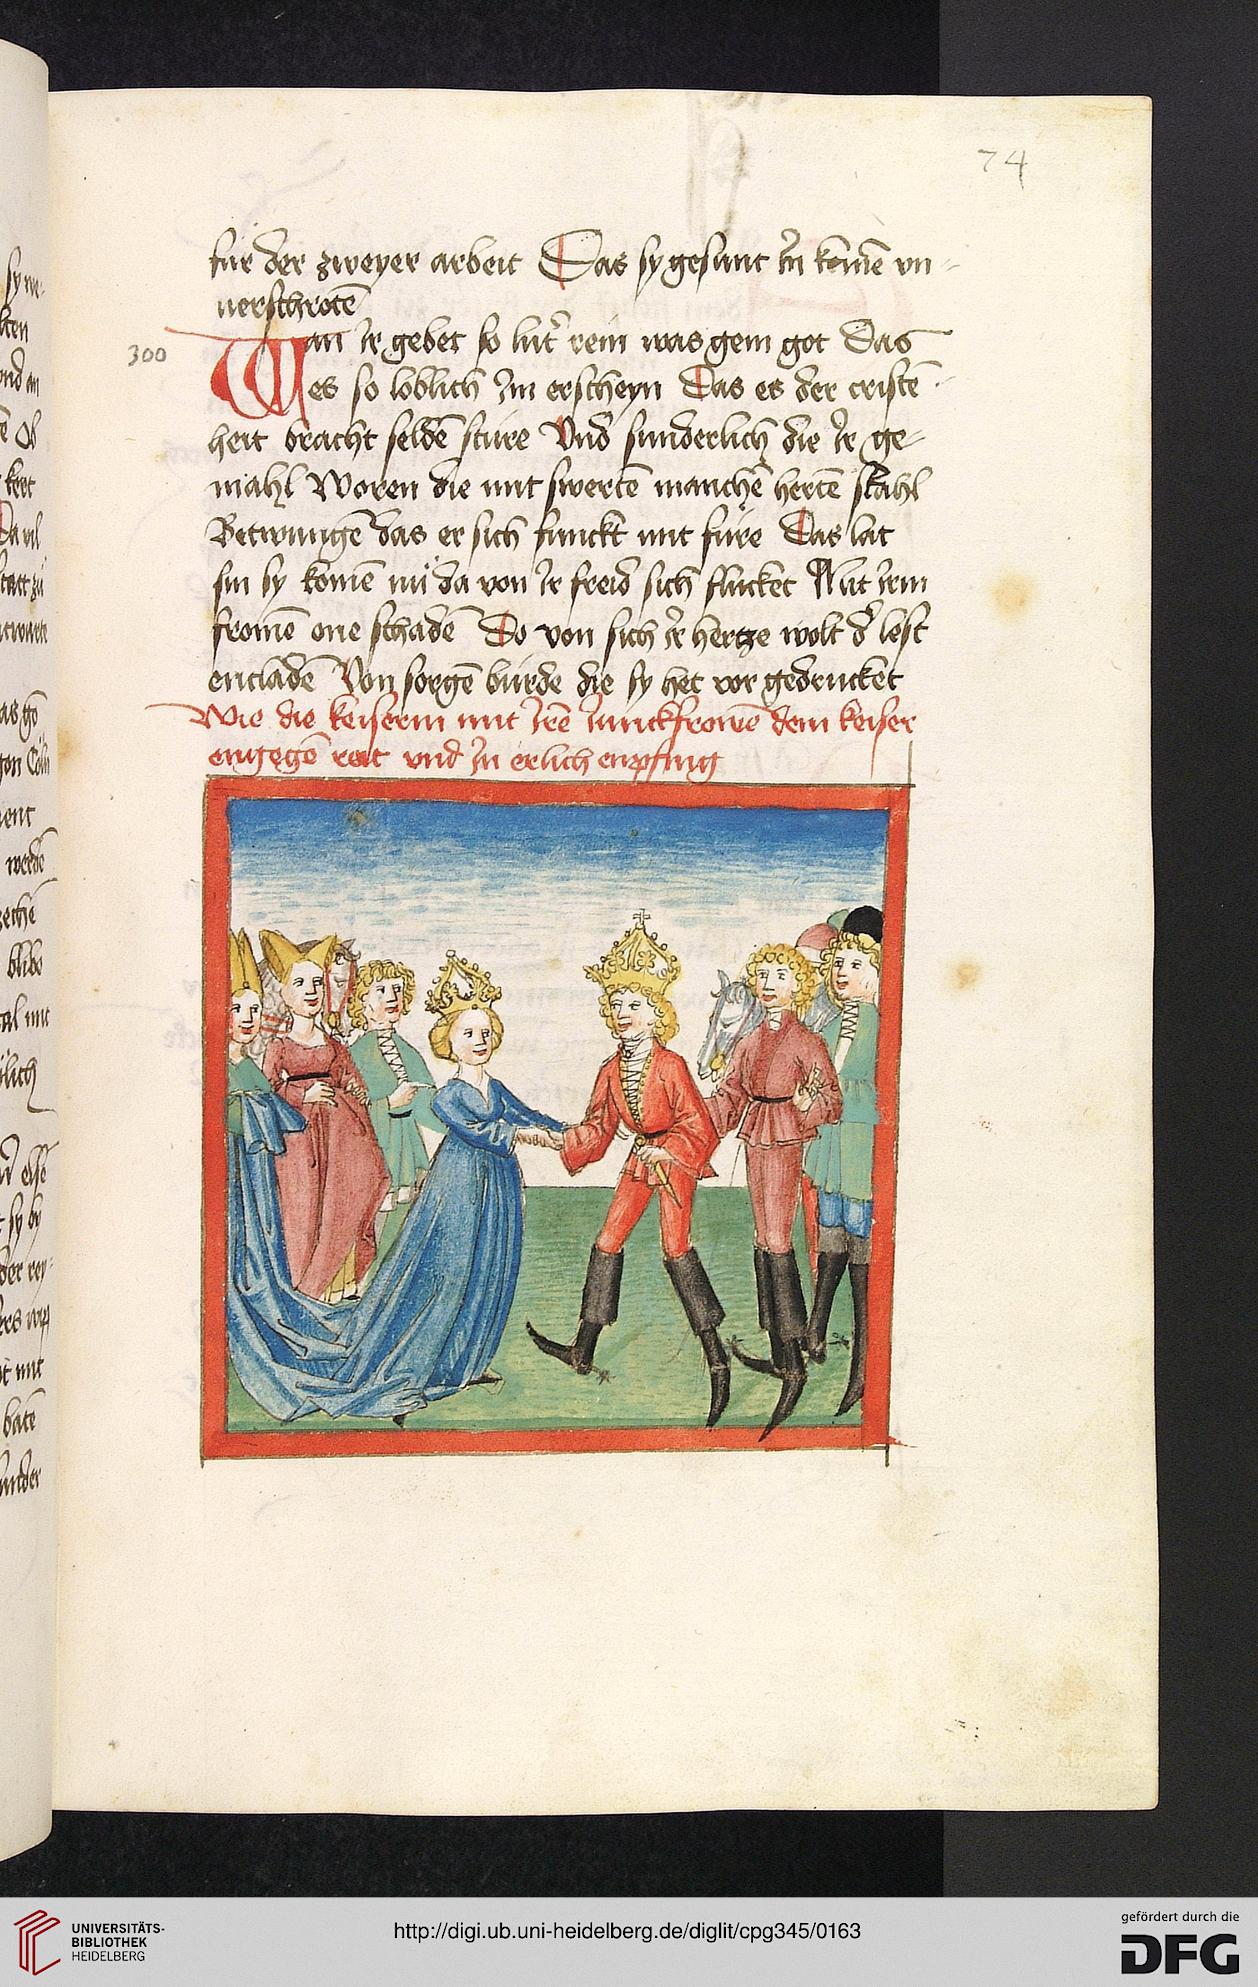 74
für der zweyer arbeit Das sy gesunt In komē vn-
uerschrotē
300
Wan Ir gebet so lut' rein was gem got Das
es so loblich Im erscheyn Das es der cristē
heit bracht seldē sture Vnd sunderlich die Ir ge-
mahl Woren die mit swertē manchē hertē stahl
Betwungē das er sich funckt mit füre Das lat
sin sy komē nu da von Ir freid sich flucket Mit Irm
fromē one schadē Do von sich Ir hertze wolt d' lest
entladē Von sorgē bürde die sy het vor gedrucket
Wie die keiserin mit Irē Junckfrowē dem keiser
engegē reit vnd In erlich enpfing
UNIVERSITÄTS-
BIBLIOTHEK
HEIDELBERG
http://digi.ub.uni-heidelberg.de/diglit/cpg345/0163
gefördert durch die
DFG